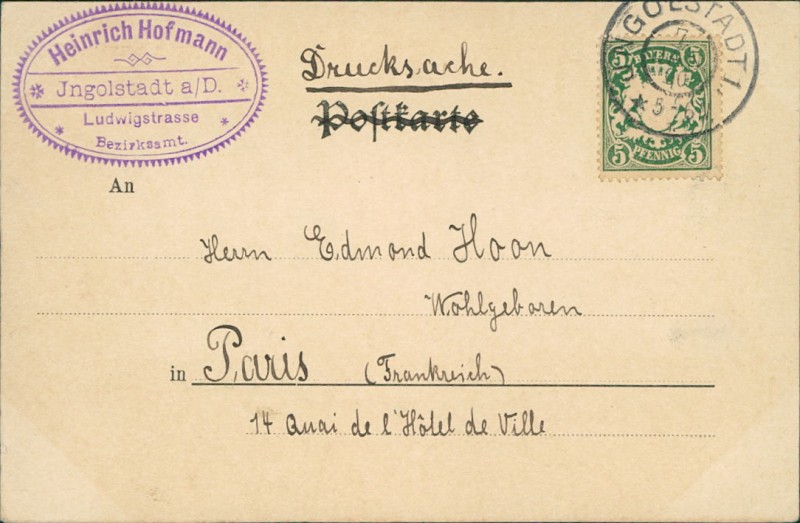 Heinrich Hofmann
Jngolstadt a/D.
Ludwigstrasse
Bezirksamt.
Drucksache.
Postkarte
INGOLSTADT 1.
5 BAYERN 5
5 PFENNIG 5
An
Herrn Edmond Hoon
Wohlgeboren
in Paris (Frankreich)
14 Quai de l'Hôtel de Ville